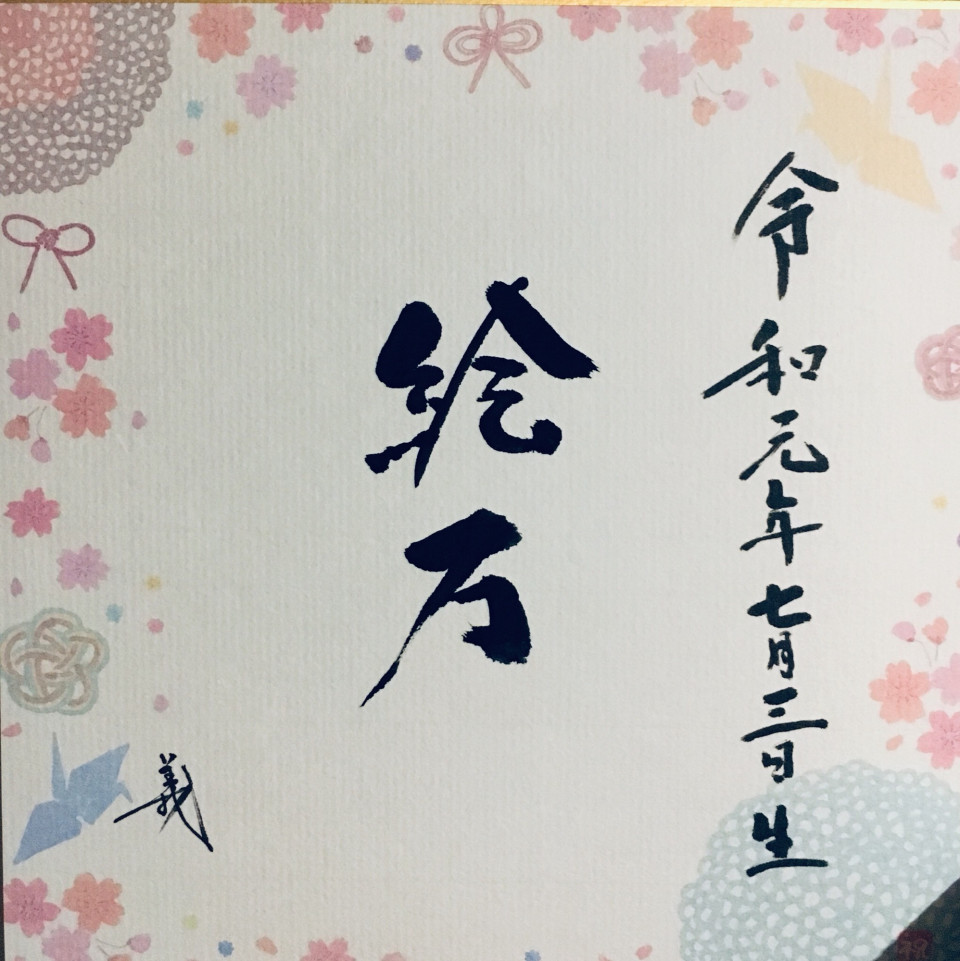 令和元年七月三日生
絵万
義